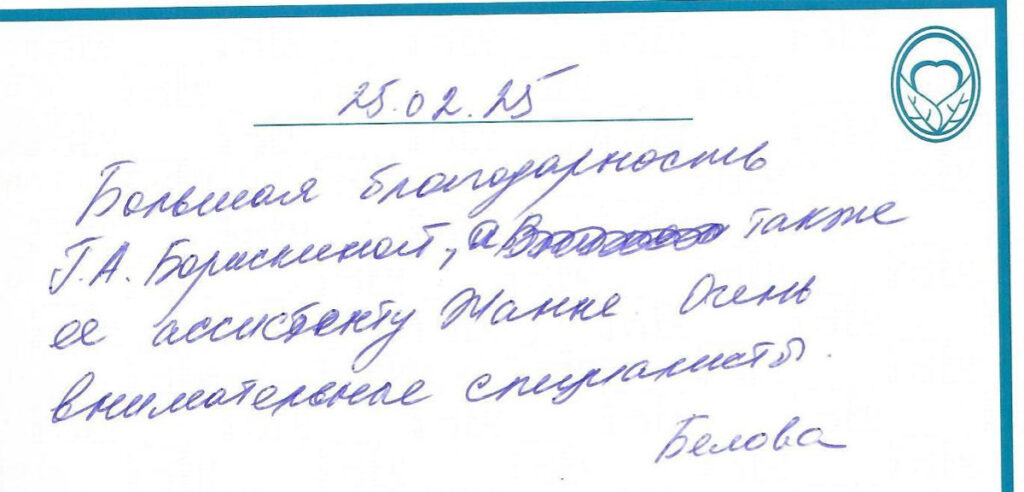 25.02.25
Большая благодарность
Г.А. Борискиной, а также
ее ассистенту Жанне. Очень
внимательные специалисты.
Белова